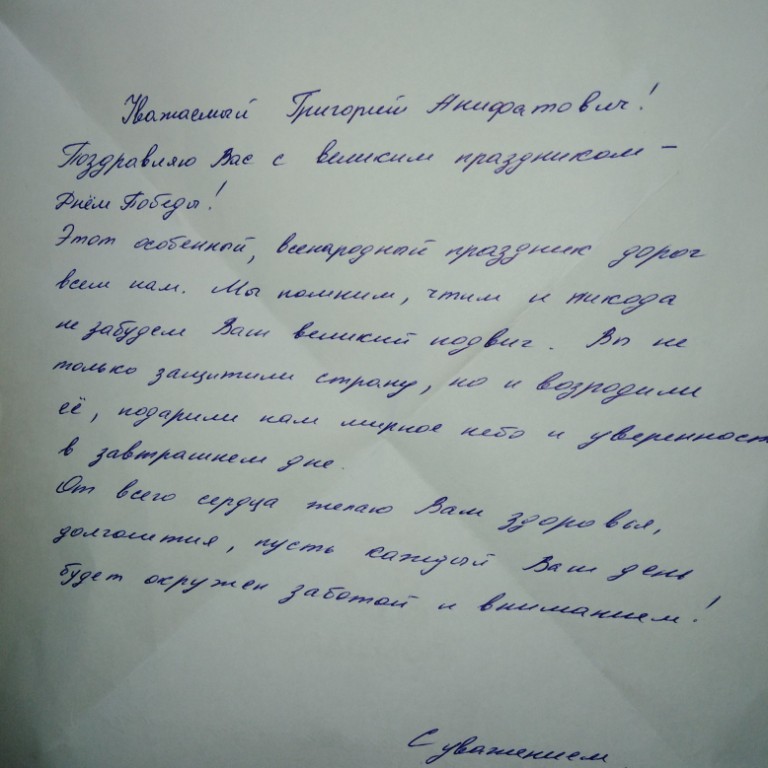 Уважаемый Григорий Анифатович!
Поздравляю Вас с великим праздником –
Днём Победы!
Этот особенный, всенародный праздник дорог
всем нам. Мы помним, чтим и никода
не забудем Ваш великий подвиг. Вы не
только защитили страну, но и возродили
её, подарили нам мирное небо и уверенност
в завтрашнем дне.
От всего сердца желаю Вам здоровья,
долголетия, пусть каждый Ваш день
будет окружен заботой и вниманием!
С уважением